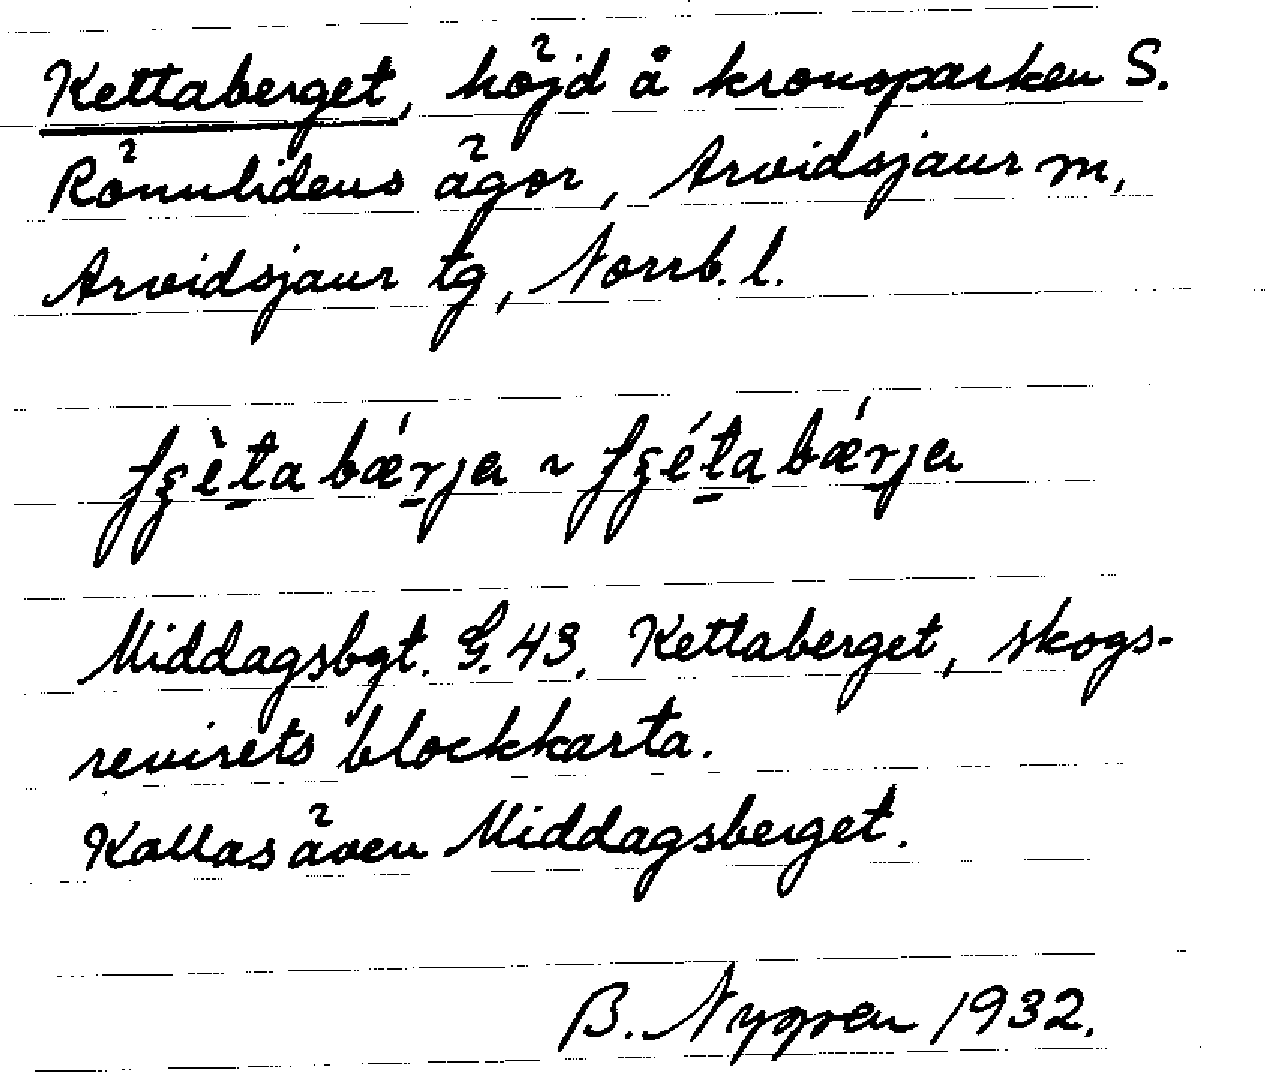 Kettaberget, höjd å kronoparken S.
Rönnlidens ägor, Arvidsjaur m,
Arvidsjaur tg, Norrb. l.
bǽrja ~ bǽrja
Middagsbgt. G. 43. Kettaberget, skogs-
revirets blockkarta.
Kallas även Middagsberget.
B. Nygren 1932.